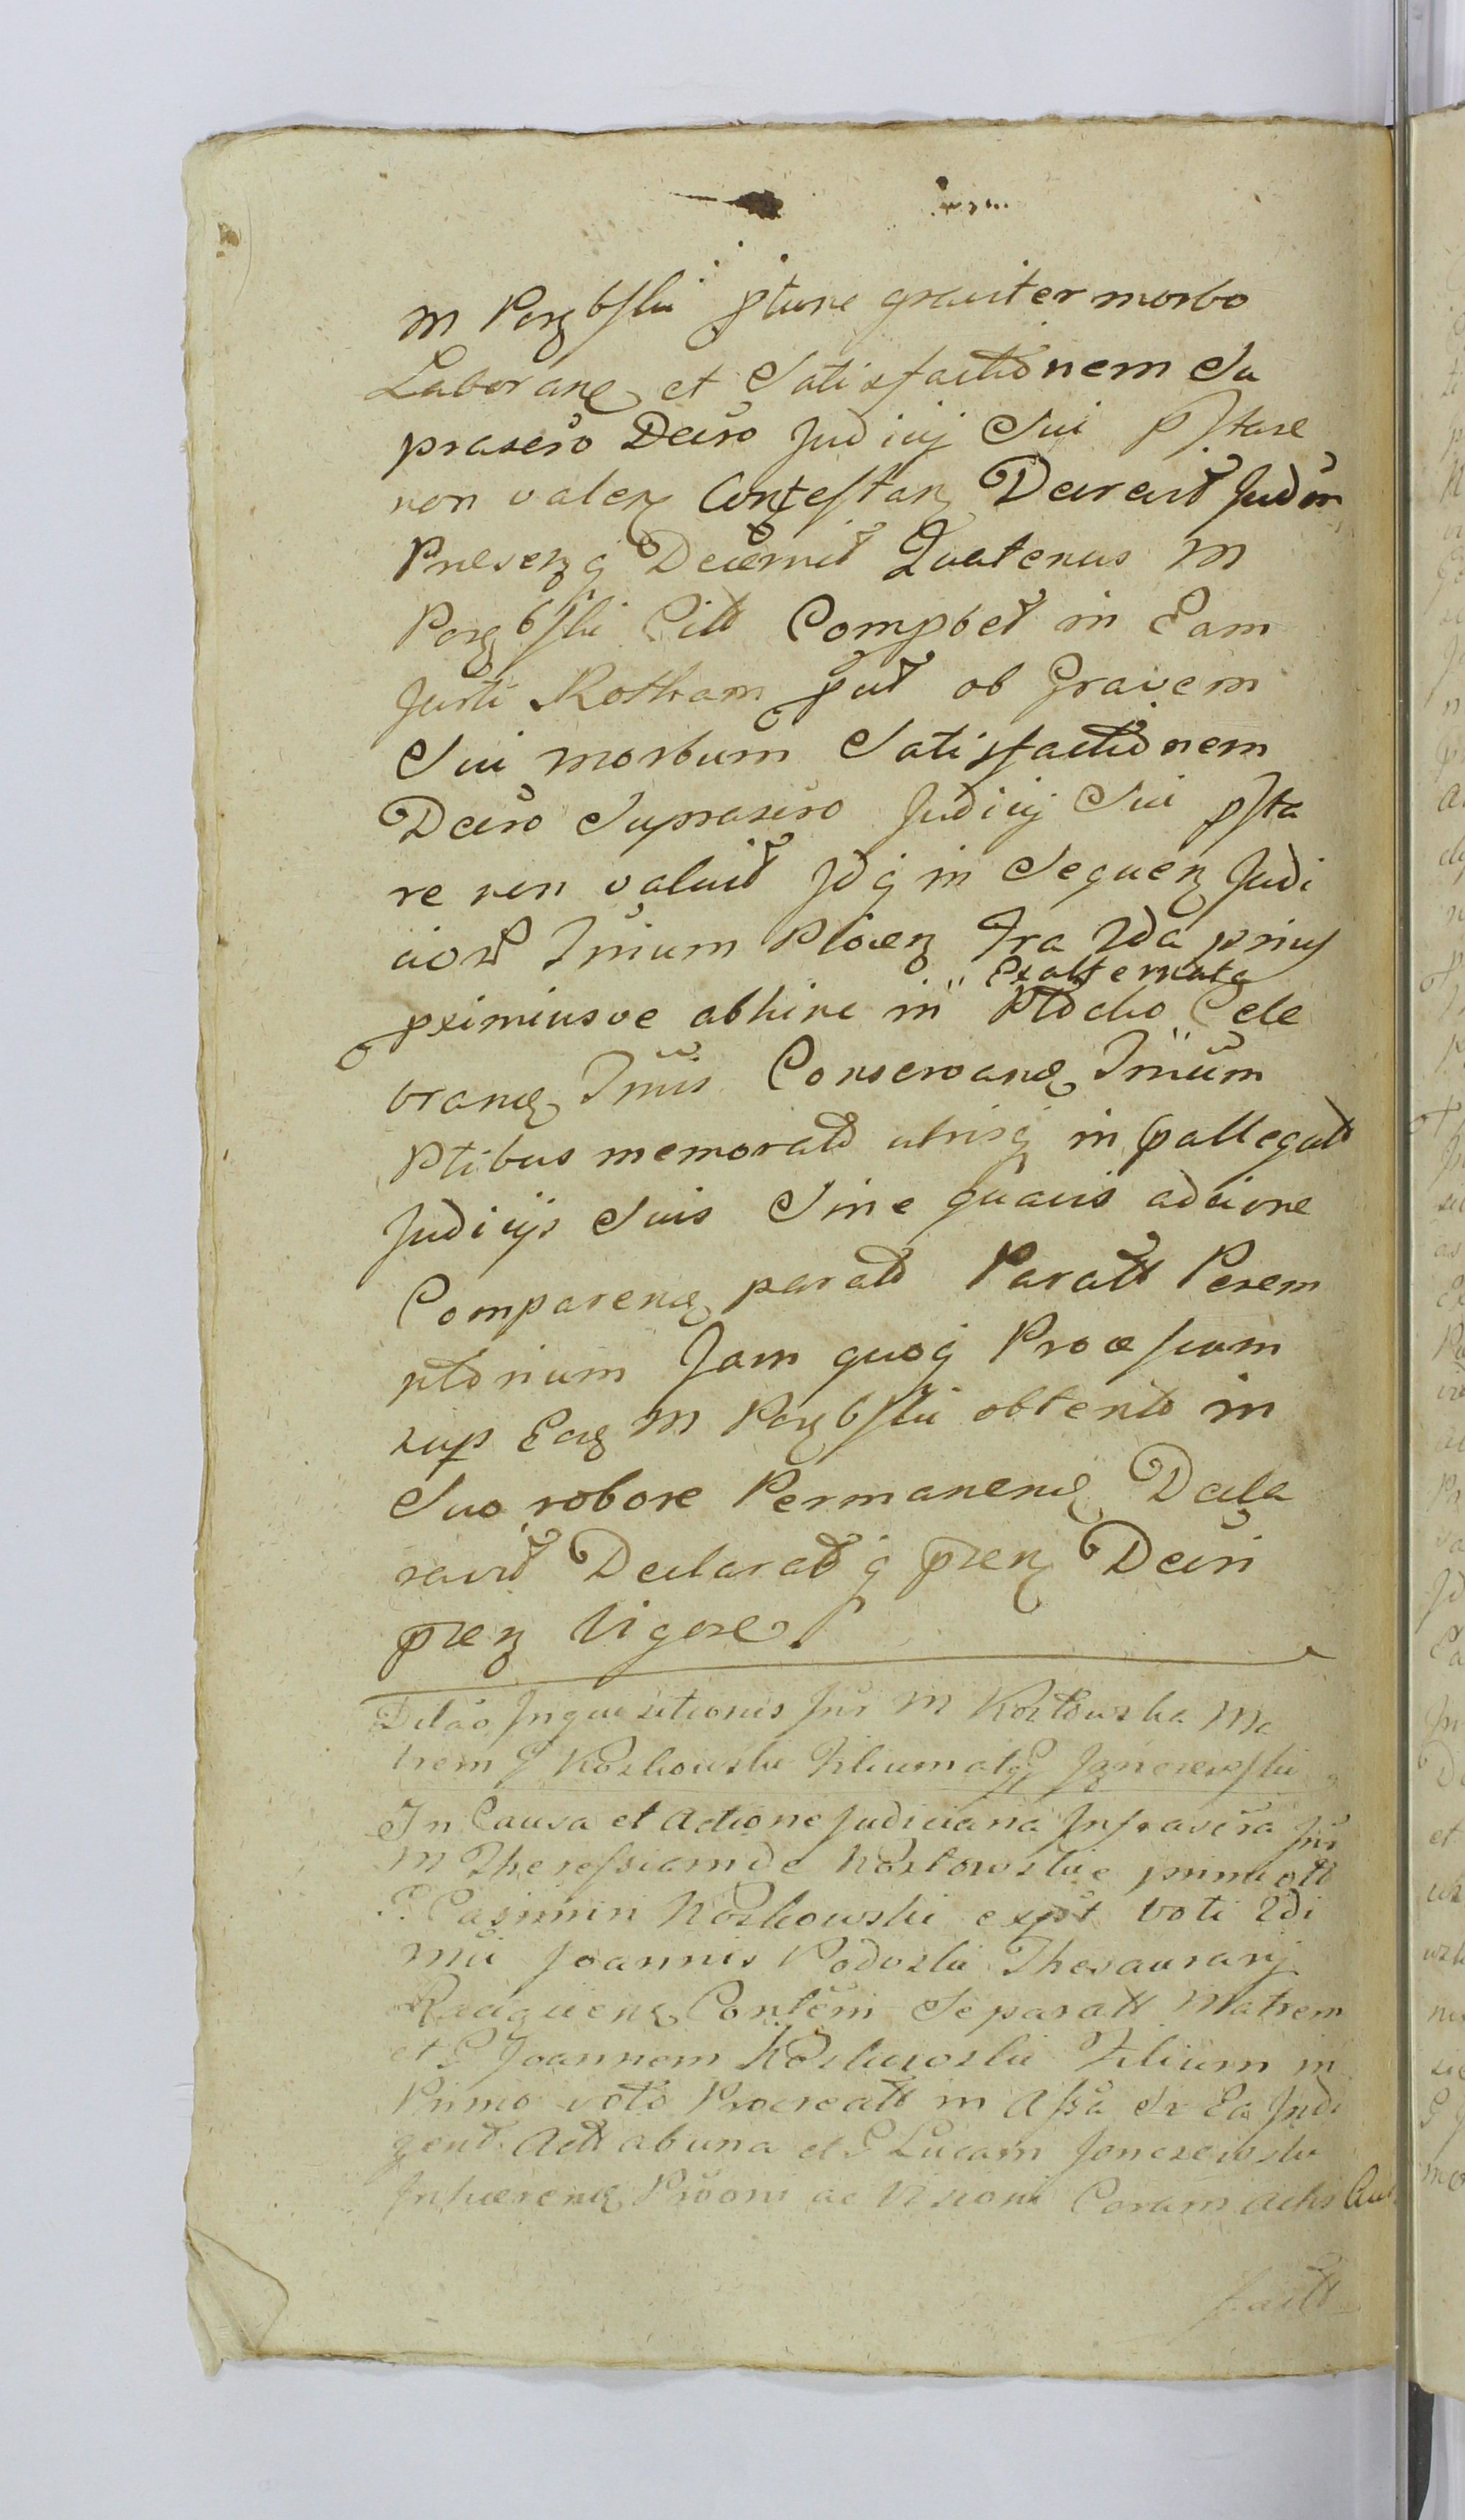 M Porębski ptunc graviter morbo
Laboranē et Satisfactionem Su
prascro Decro Judicij Sui pstare
non valen Contestan Decrevit Judm
Presenq Decernit Quatenus M
Porębski Citt Compbet in Eam
Justi Rotham put ob Gravem
Sui morbum Satisfactionem
Decro Suprascro Judicij Sui psta
re non valuit Jdq in Sequen Judi
cior Tmium Plocen Fra 2da prius
pximiusve abhinc in Exalternata Plocko Cele
brand Tmis Conservand Tmium
Ptibus memoratt utrisq in pallegatt
Judicijs Suis Sine quavis adcione
Comparend paratt Paratt Perem
ptorium Jam quoq Processum
sup Eod M Porębski obtentt in
Suo robore Permanend Decla
ravit Declaratq pren Decri
pren Vigore
Dilao Inquisitionis Int M Kozłowska Ma
trem G Koskowski Filium atq G Jonczewski
In Causa et Actione Judiciaria Infrascra Int
M Theressiam de Kozłowskie primi ott
G. Casimiri Koskowski expt voti 2di
Mci Joannis Podoski Thesaurarij
Raciąuien Contem Separatt Matrem
et G Joannem Koskowski Filium in
Primo voto Procreatt in Assa Sr Ea Indi
gent. Actt ab una et G Lucam Jonczewski
Inhaerend Proni ac Visioni Coram Actis
factt